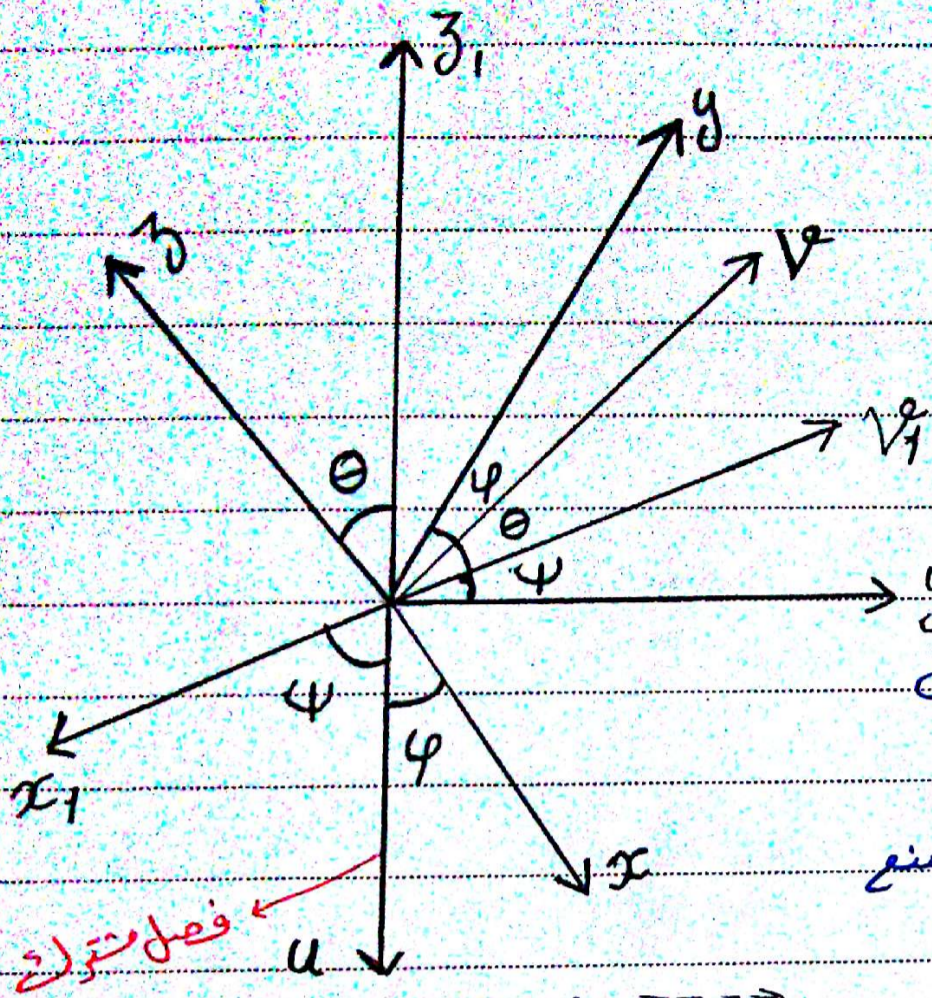 z₁
y
z
v
v₁
θ
φ
θ
ψ
ψ
φ
x₁
x
فصل مشترك
u